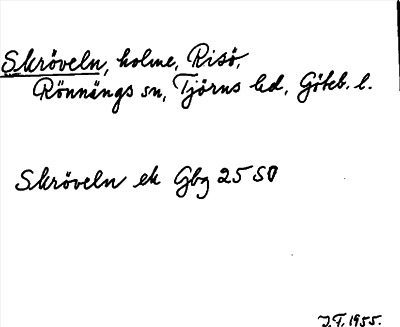 Skröveln, holme, Risö,
Rönnängs sn, Tjörns hd, Göteb. l.
Skröveln ek Gbg 25 SO
J.F. 1955.